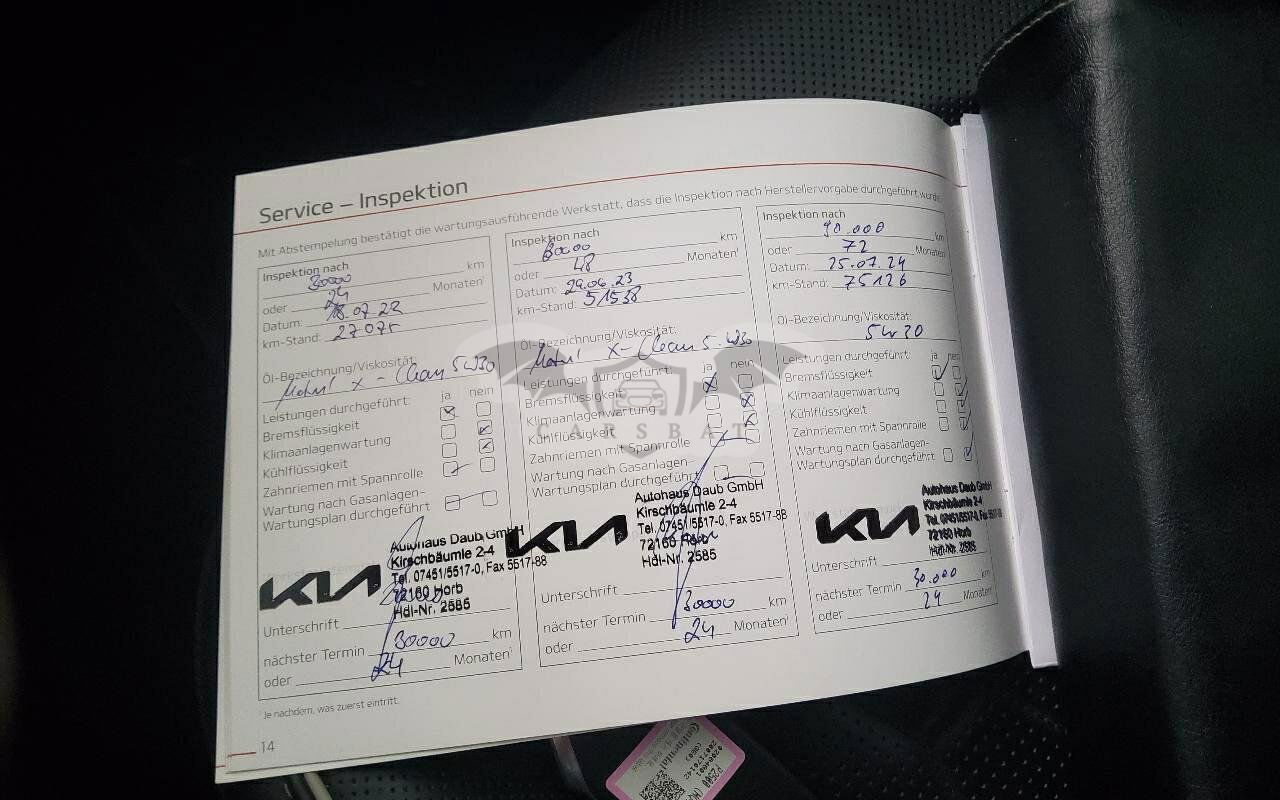 Service – Inspektion
Mit Abstempelung bestätigt die wartungsausführende Werkstatt, dass die Inspektion nach Herstellervorgabe durchgeführt wurde.
Inspektion nach
30000 km
oder 24 Monaten¹
Datum: 18.07.22
km-Stand: 27075
Öl-Bezeichnung/Viskosität:
Motul X-Clean 5W30
Leistungen durchgeführt: ja nein
Bremsflüssigkeit
Klimaanlagenwartung
Kühlflüssigkeit
Zahnriemen mit Spannrolle
Wartung nach Gasanlagen-
Wartungsplan durchgeführt
KIA
Autohaus Daub GmbH
Kirschbäumle 2-4
Tel. 07451/5517-0, Fax 5517-88
72160 Horb
Hdl-Nr. 2585
Unterschrift
nächster Termin 30000 km
oder 24 Monaten¹
Inspektion nach
60000 km
oder 48 Monaten¹
Datum: 29.06.23
km-Stand: 51538
Öl-Bezeichnung/Viskosität:
Motul X-Clean 5.W30
Leistungen durchgeführt: ja nein
Bremsflüssigkeit
Klimaanlagenwartung
Kühlflüssigkeit
Zahnriemen mit Spannrolle
Wartung nach Gasanlagen-
Wartungsplan durchgeführt
KIA
Autohaus Daub GmbH
Kirschbäumle 2-4
Tel. 07451/5517-0, Fax 5517-88
72160 Horb
Hdl-Nr. 2585
Unterschrift
nächster Termin 30000 km
oder 24 Monaten¹
Inspektion nach
90.000 km
oder 72 Monaten¹
Datum: 25.07.24
km-Stand: 75126
Öl-Bezeichnung/Viskosität:
5W30
Leistungen durchgeführt: ja nein
Bremsflüssigkeit
Klimaanlagenwartung
Kühlflüssigkeit
Zahnriemen mit Spannrolle
Wartung nach Gasanlagen-
Wartungsplan durchgeführt
KIA
Autohaus Daub GmbH
Kirschbäumle 2-4
Tel. 07451/5517-0, Fax 5517-88
72160 Horb
Hdl-Nr. 2585
Unterschrift
nächster Termin 30.000 km
oder 24 Monaten¹
¹ Je nachdem, was zuerst eintritt.
14
CARSBAT
Continental